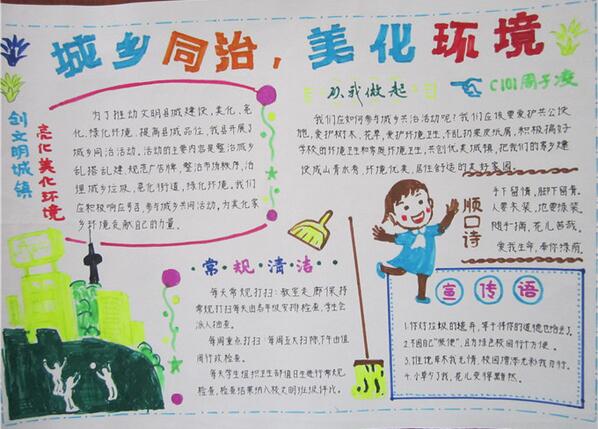 城乡同治，美化环境
从我做起
C101周子凌
创文明城镇
亮化美化环境
为了推动文明县城建设，美化、亮
化、绿化环境，提高县城品位，我县开展了
城乡同治活动。活动的主要内容是整治城乡
乱搭乱建，规范广告牌，整治市场秩序，治
理城乡垃圾，亮化街道，绿化环境。我们
应积极响应号召，参与城乡共同活动，为美化家
乡环境贡献自己的力量。
我们应如何参与城乡共治活动呢？我们应该要爱护公共设
施，爱护树木、花草，爱护环境卫生，不乱扔果皮纸屑，积极搞好
学校的环境卫生和家庭环境卫生，共创优美城镇，把我们的家乡建
设成山青水秀，环境优美，居住舒适的美好家园。
顺口诗
手下留情，脚下留青。
人要衣装，地要绿装。
随手一摘，花儿
爱我生命，奉你绿荫。
常规清洁
每天常规打扫：教室走廊保持
常规打扫每天由各年级安排检查，学生会
派人抽查。
每周重点打扫：每周五大扫除，下午由值
周行政检查。
每天学生组织卫生部值日生进行常规
检查，检查结果纳入校文明班级评比。
宣传语
1.你对垃圾的随弃，等于将你的道德也抛去了。
2.不因自己“顺便”，且为绿色校园行个方便。
3.让花儿青木我无情，校园增添光彩我亦行。
4.小草乃了我，花儿变得黑自然。